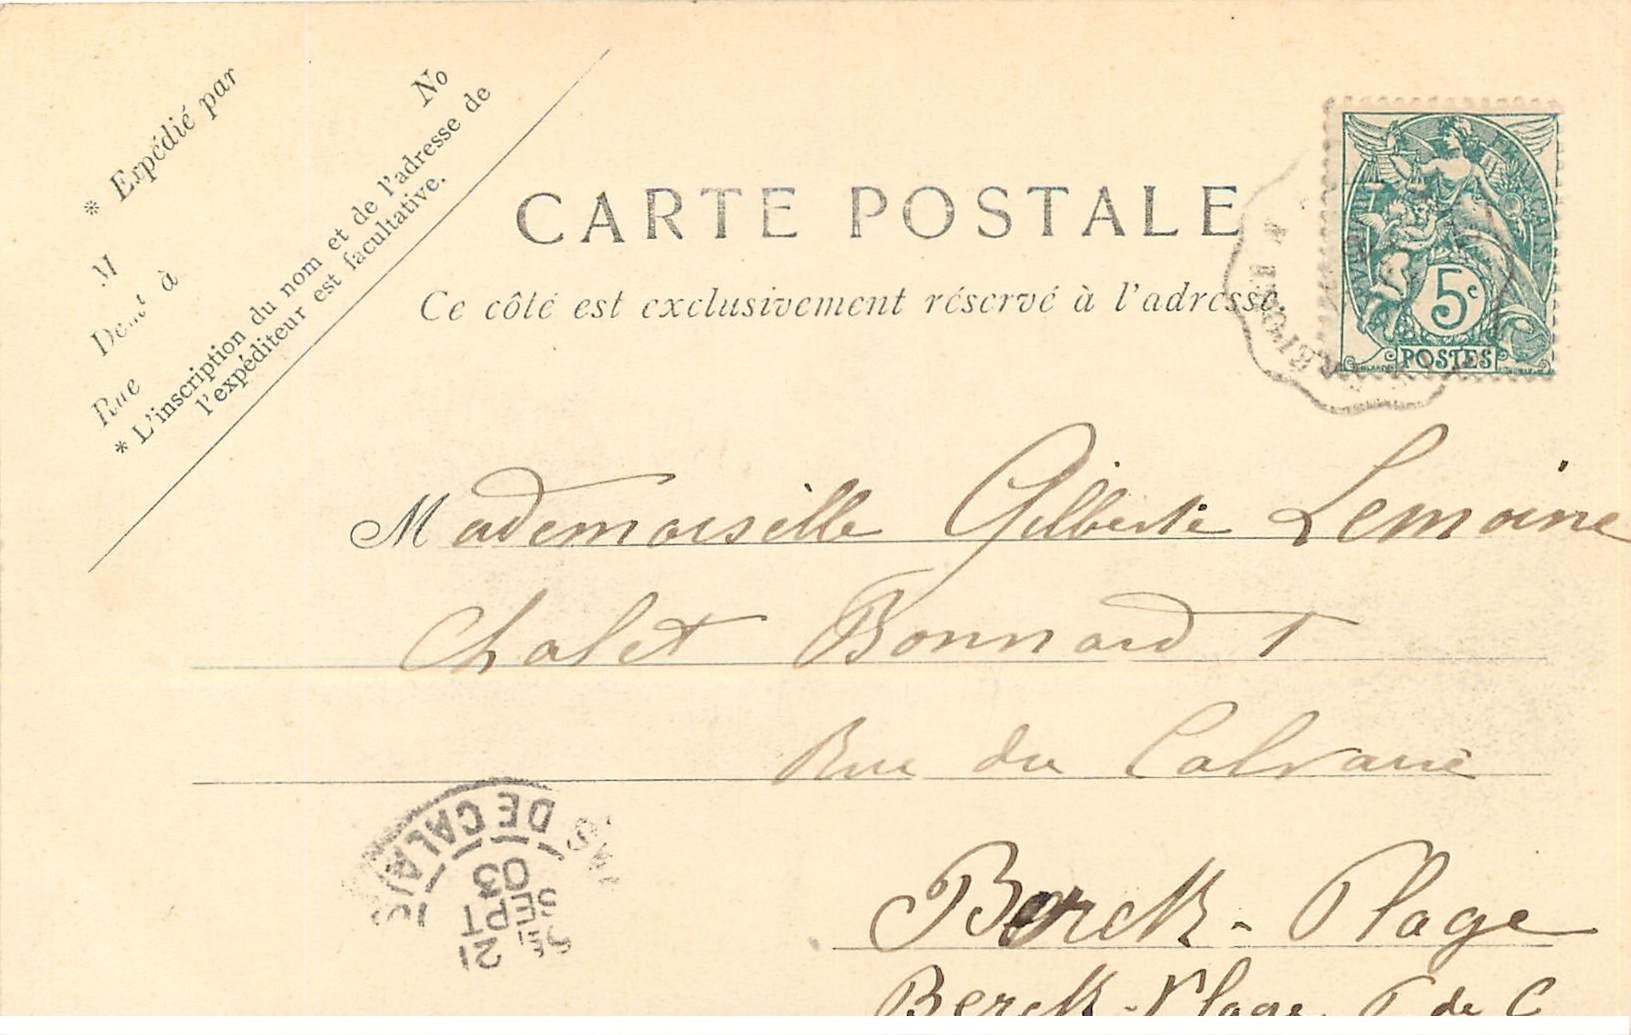 * Expédié par
M No
Demt à
Rue
* L'inscription du nom et de l'adresse de
l'expéditeur est facultative.
CARTE POSTALE
Ce côté est exclusivement réservé à l'adresse
5c
POSTES
Mademoiselle Gilberte Lemoine
Chalet Bonnard
Rue du Calvaire
Berck-Plage
Berck-Plage P de C
DE CALAIS
21
SEPT
03